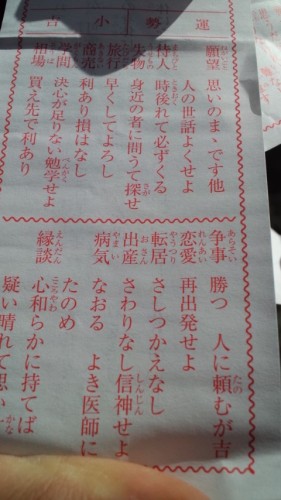 運勢小吉
願望 思いのまゝです他
人の世話よくせよ
待人 時後れて必ずくる
失物 身近の者に問うて探せ
旅行 早くしてよろし
商売 利あり損はなし
学問 決心が足りない勉学せよ
相場 買え先で利あり
争事 勝つ 人に頼むが吉
恋愛 再出発せよ
転居 さしつかえなし
出産 さわりなし信神せよ
病気 なおる よき医師に
たのめ
縁談 心和らかに持てば
疑い晴れて思い